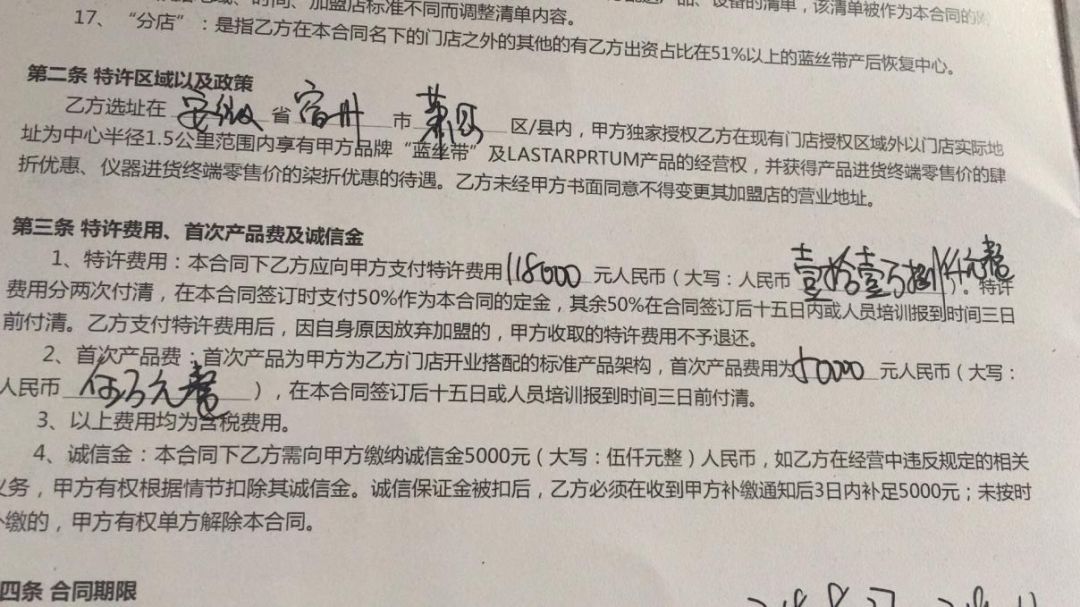 、时间、加盟店标准不同而调整清单内容。
品、设备的清单，该清单被作为本合同的附
17、“分店”：是指乙方在本合同名下的门店之外的其他的有乙方出资占比在51%以上的蓝丝带产后恢复中心。
第二条 特许区域以及政策
乙方选址在 安徽 省 宿州 市 萧县 区/县内，甲方独家授权乙方在现有门店授权区域外以门店实际地
址为中心半径1.5公里范围内享有甲方品牌“蓝丝带”及LASTARPRTUM产品的经营权，并获得产品进货终端零售价的肆
折优惠、仪器进货终端零售价的柒折优惠的待遇。乙方未经甲方书面同意不得变更其加盟店的营业地址。
第三条 特许费用、首次产品费及诚信金
1、特许费用：本合同下乙方应向甲方支付特许费用 118000 元人民币（大写：人民币 壹拾壹万捌仟元整 ）。特许
费用分两次付清，在本合同签订时支付50%作为本合同的定金，其余50%在合同签订后十五日内或人员培训报到时间三日
前付清。乙方支付特许费用后，因自身原因放弃加盟的，甲方收取的特许费用不予退还。
2、首次产品费：首次产品为甲方为乙方门店开业搭配的标准产品架构，首次产品费用为 50000 元人民币（大写：
人民币 伍万元整 ），在本合同签订后十五日或人员培训报到时间三日前付清。
3、以上费用均为含税费用。
4、诚信金：本合同下乙方需向甲方缴纳诚信金5000元（大写：伍仟元整）人民币，如乙方在经营中违反规定的相关
义务，甲方有权根据情节扣除其诚信金。诚信保证金被扣后，乙方必须在收到甲方补缴通知后3日内补足5000元；未按时
补缴的，甲方有权单方解除本合同。
四条 合同期限